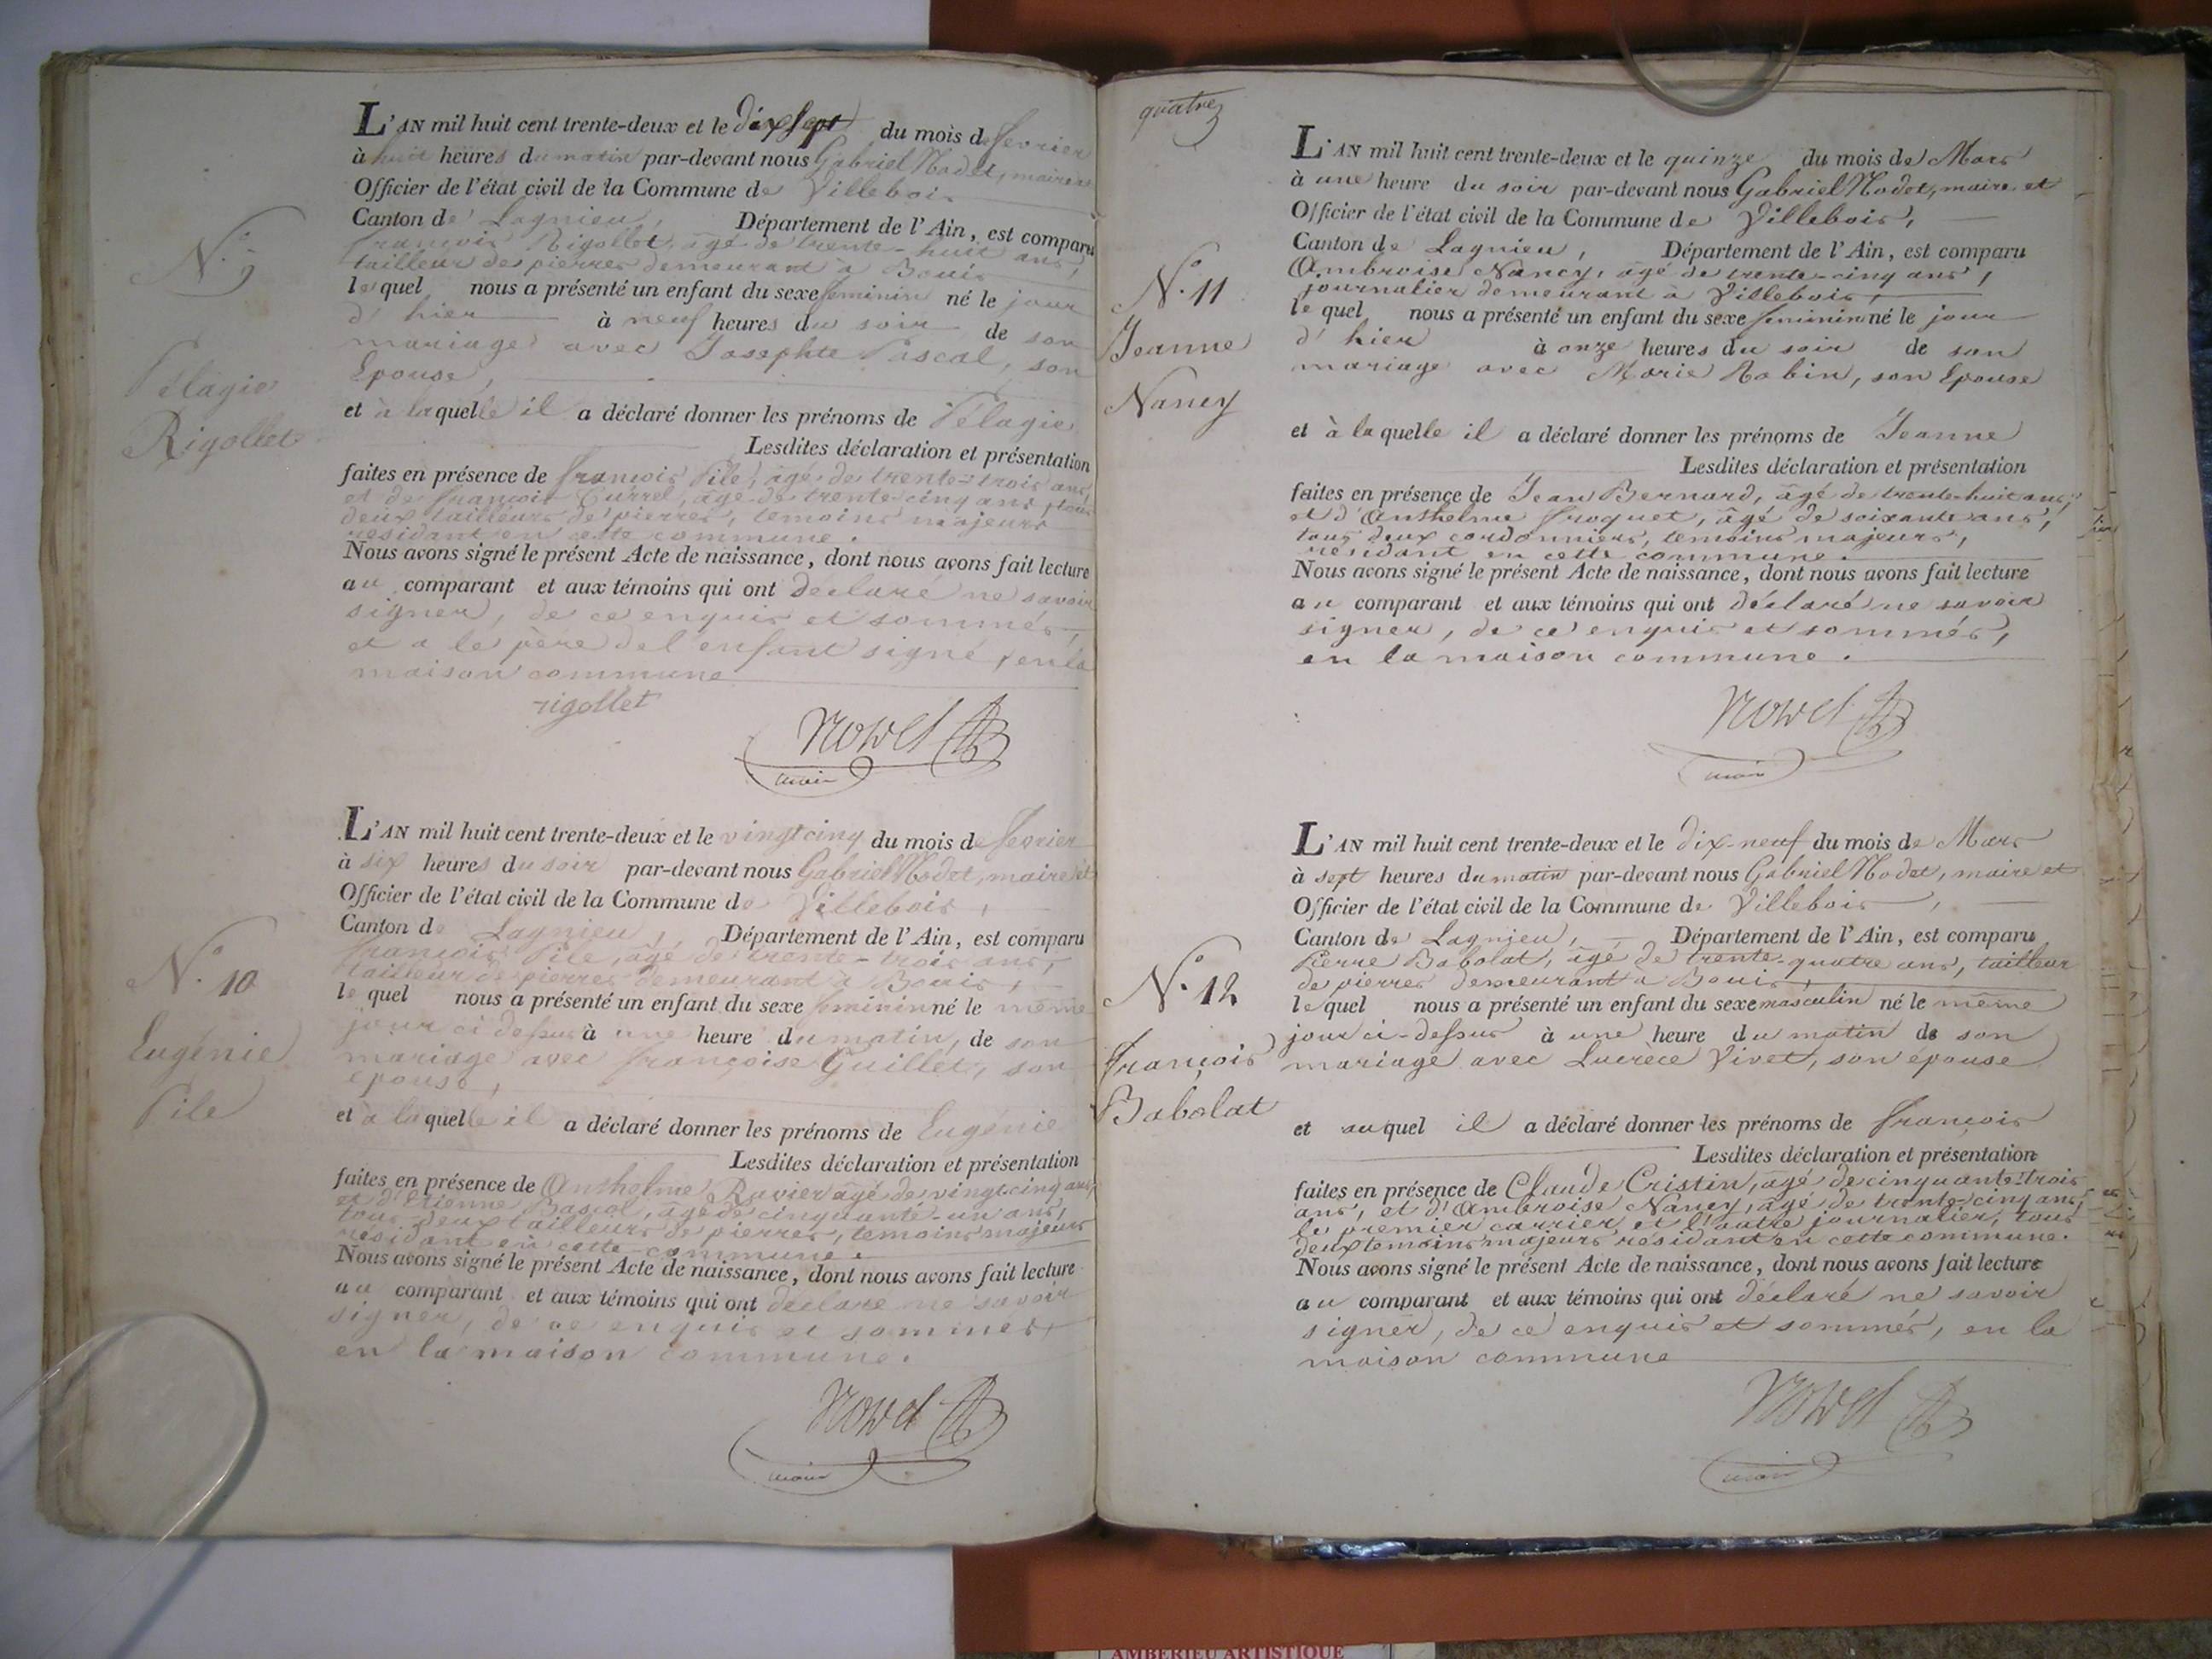 N.° 9
Pélagie
Rigollet
L'AN mil huit cent trente-deux et le dix sept du mois de fevrier
à huit heures du matin par-devant nous Gabriel Nodet, maire et
Officier de l'état civil de la Commune de Villebois
Canton de Lagnieu, Département de l'Ain, est comparu
françois Rigollet, âgé de trente-huit ans,
tailleur de pierres demeurant à Bouis
lequel nous a présenté un enfant du sexe feminin né le jour
d'hier à neuf heures du soir de son
mariage avec Josephte Pascal, son
Epouse,
et à laquelle il a déclaré donner les prénoms de Pélagie
Lesdites déclaration et présentation
faites en présence de françois Pile, âgé de trente-trois ans,
et de françois Currel, âgé de trente cinq ans, tous
deux tailleurs de pierres, temoins majeurs
residant en cette commune.
Nous avons signé le présent Acte de naissance, dont nous avons fait lecture
au comparant et aux témoins qui ont déclaré ne savoir
signer, de ce enquis et sommés,
et a le père de l'enfant signé, en la
maison commune
rigollet
maire
N.° 10
Eugénie
Pile
L'AN mil huit cent trente-deux et le vingt cinq du mois de fevrier
à six heures du soir par-devant nous Gabriel Nodet, maire et
Officier de l'état civil de la Commune de Villebois,
Canton de Lagnieu, Département de l'Ain, est comparu
françois Pile, âgé de trente-trois ans,
tailleur de pierres demeurant à Bouis,
lequel nous a présenté un enfant du sexe feminin né le même
jour ci dessus à une heure du matin, de son
mariage avec françoise Guillet, son
epouse,
et à laquelle il a déclaré donner les prénoms de Eugénie
Lesdites déclaration et présentation
faites en présence de Anthelme Ravier âgé de vingt cinq ans,
et d'Etienne Pascal, âgé de cinquante-un ans,
tous deux tailleurs de pierres, temoins majeurs
résidant en cette commune.
Nous avons signé le présent Acte de naissance, dont nous avons fait lecture
au comparant et aux témoins qui ont déclaré ne savoir
signer, de ce enquis et sommés,
en la maison commune.
maire
quatre
N.° 11
Jeanne
Nancy
L'AN mil huit cent trente-deux et le quinze du mois de Mars
à une heure du soir par-devant nous Gabriel Nodet, maire et
Officier de l'état civil de la Commune de Villebois,
Canton de Lagnieu, Département de l'Ain, est comparu
Ambroise Nancy, âgé de trente-cinq ans,
journalier demeurant à Villebois,
lequel nous a présenté un enfant du sexe feminin né le jour
d'hier à onze heures du soir de son
mariage avec Marie Robin, son Epouse
et à laquelle il a déclaré donner les prénoms de Jeanne
Lesdites déclaration et présentation
faites en présence de Jean Bernard, âgé de trente-huit ans,
et d'Anthelme froquet, âgé de soixante ans,
tous deux cordonniers, temoins majeurs,
résidant en cette commune.
Nous avons signé le présent Acte de naissance, dont nous avons fait lecture
au comparant et aux témoins qui ont déclaré ne savoir
signer, de ce enquis et sommés,
en la maison commune.
maire
N.° 12
François
Babolat
L'AN mil huit cent trente-deux et le dix-neuf du mois de Mars
à sept heures du matin par-devant nous Gabriel Nodet, maire et
Officier de l'état civil de la Commune de Villebois,
Canton de Lagnieu, Département de l'Ain, est comparu
Pierre Babolat, âgé de trente-quatre ans, tailleur
de pierres demeurant à Bouis,
lequel nous a présenté un enfant du sexe masculin né le même
jour ci-dessus à une heure du matin de son
mariage avec Lucrèce Vivet, son épouse
et auquel il a déclaré donner les prénoms de françois
Lesdites déclaration et présentation
faites en présence de Claude Cristin, âgé de cinquante-trois
ans, et d'Ambroise Nancy, âgé de trente-cinq ans,
le premier carrier et l'autre journalier, tous
deux temoins majeurs résidant en cette commune.
Nous avons signé le présent Acte de naissance, dont nous avons fait lecture
au comparant et aux témoins qui ont déclaré ne savoir
signer, de ce enquis et sommés, en la
maison commune
maire
AMBERIEU ARTISTIQUE